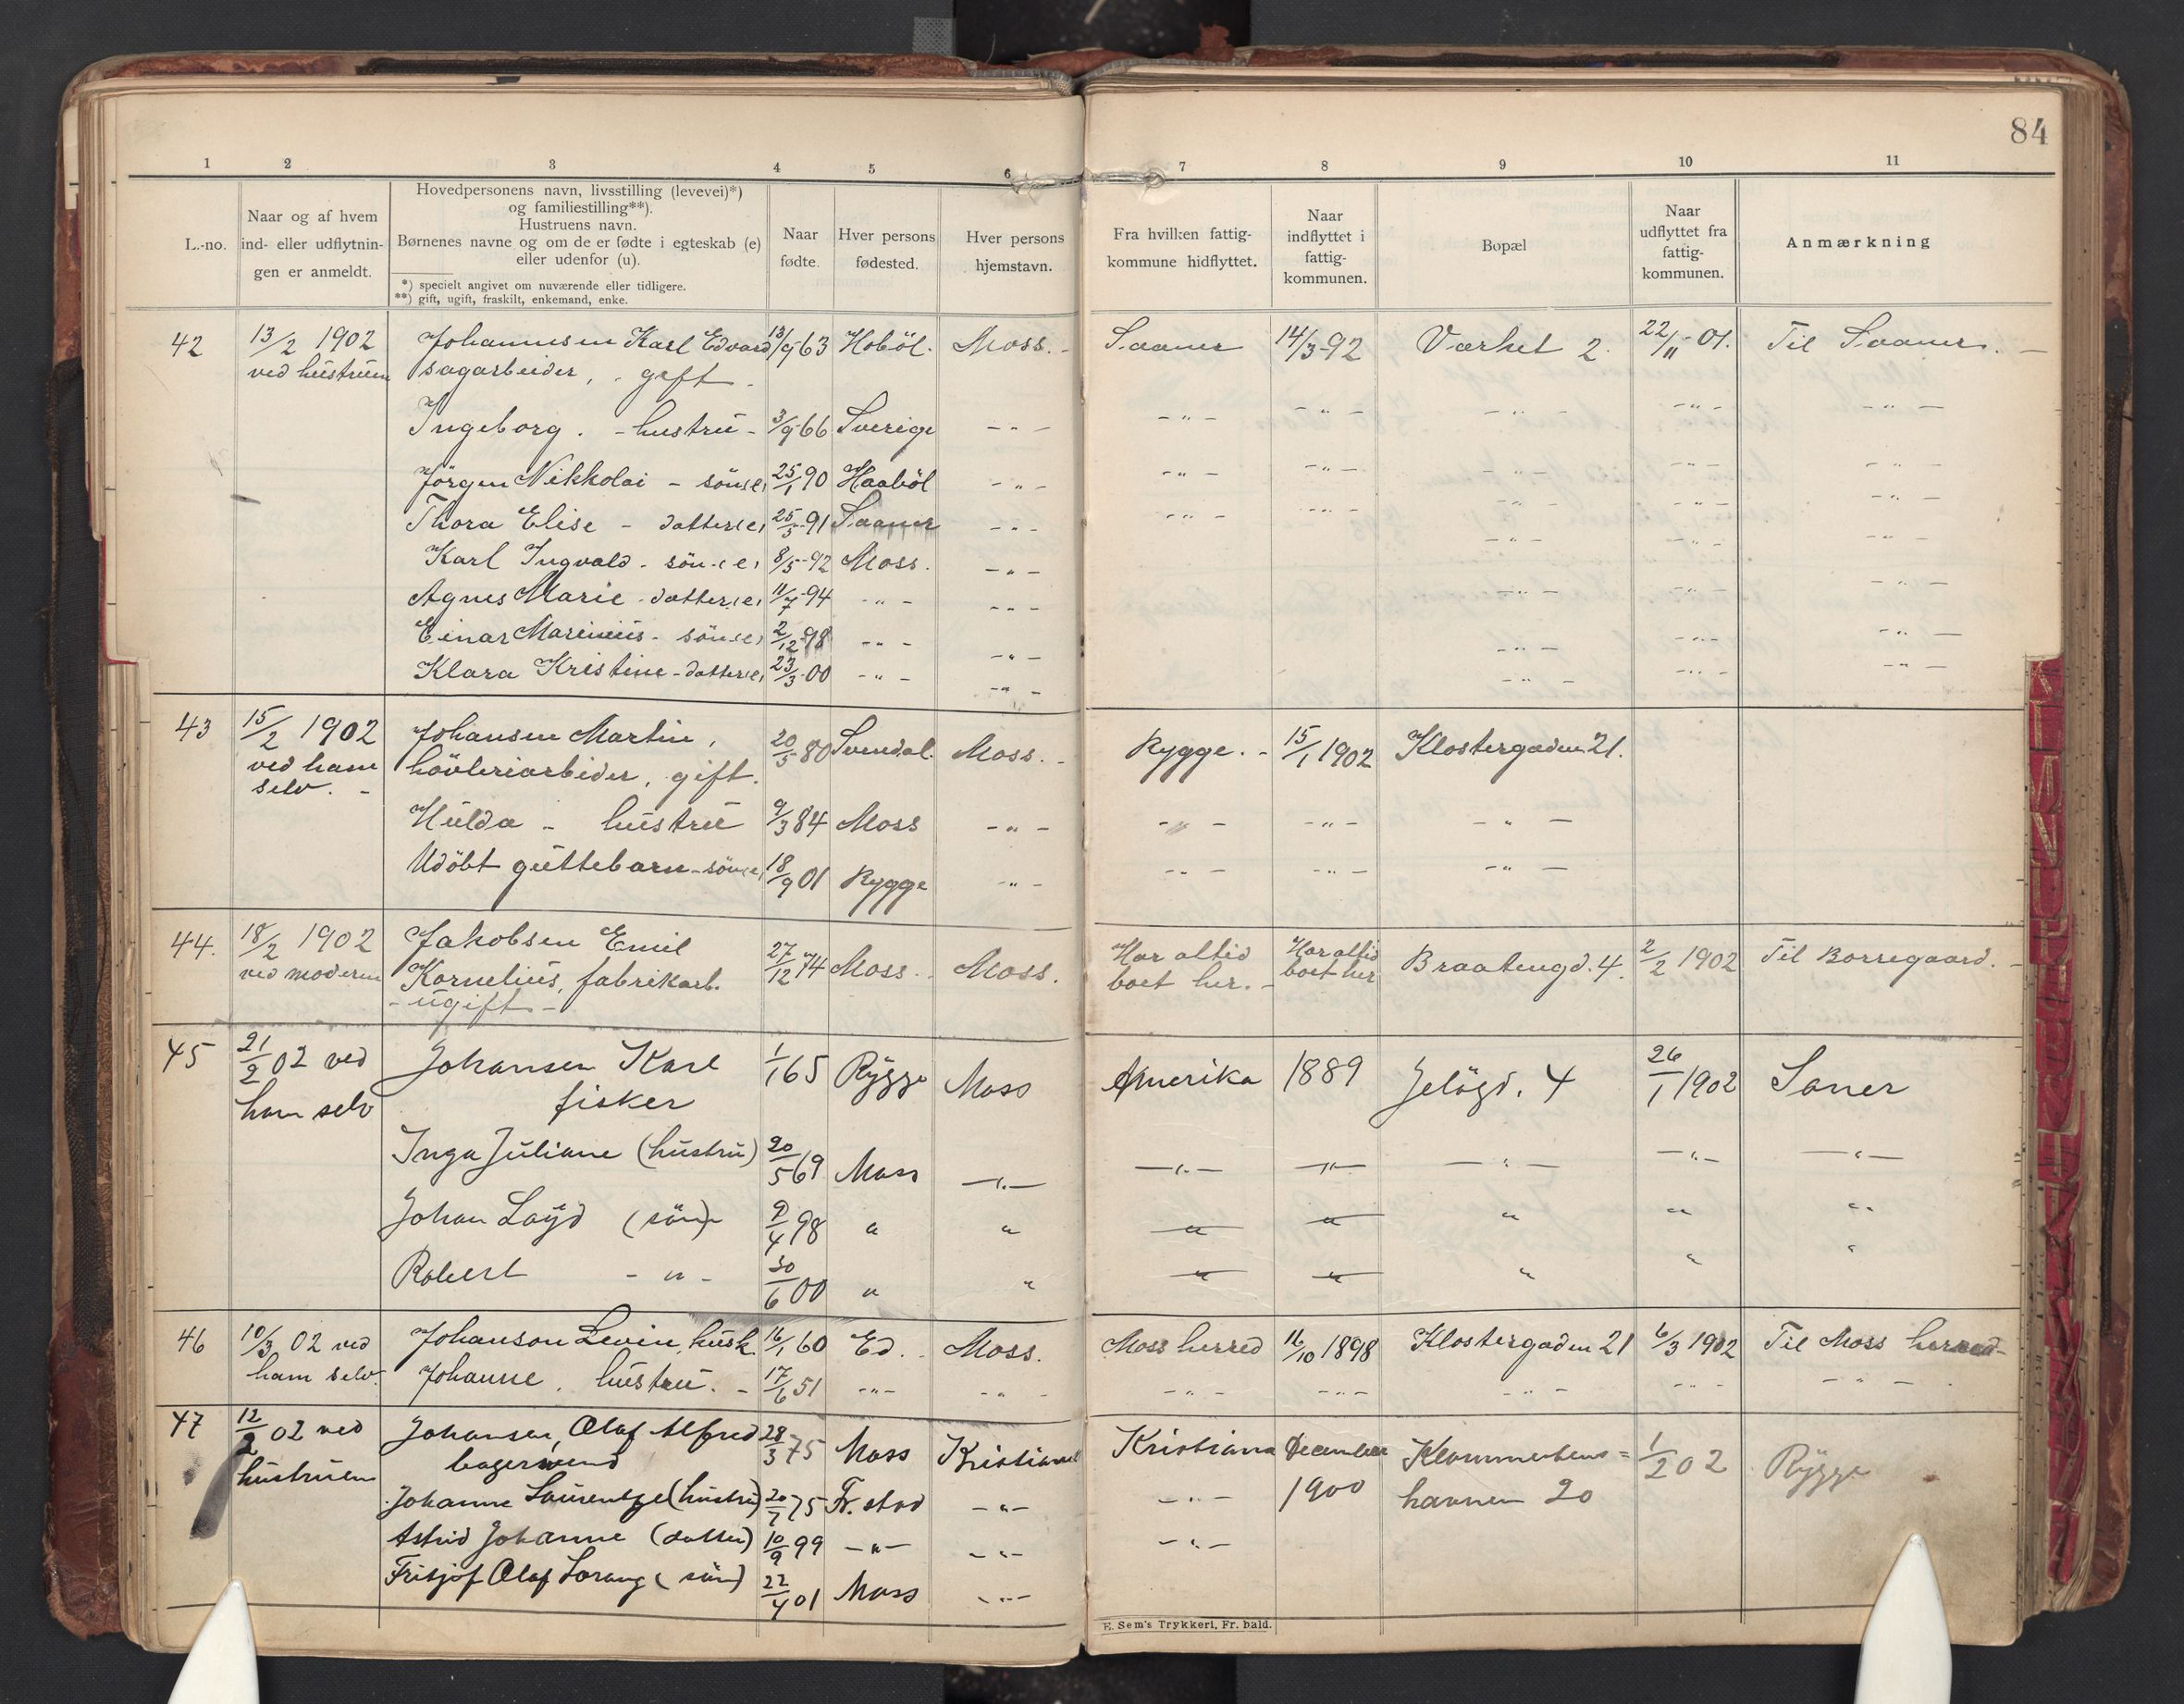 84
1 2 3 4 5 6 7 8 9 10 11
L.-no.
Naar og af hvem
ind- eller udflytnin-
gen er anmeldt.
Hovedpersonens navn, livsstilling (levevei)*)
og familiestilling**).
Hustruens navn.
Børnenes navne og om de er fødte i egteskab (e)
eller udenfor (u).
*) specielt angivet om nuværende eller tidligere.
**) gift, ugift, fraskilt, enkemand, enke.
Naar
fødte.
Hver persons
fødested.
Hver persons
hjemstavn.
Fra hvilken fattig-
kommune hidflyttet.
Naar
indflyttet i
fattig-
kommunen.
Bopæl
Naar
udflyttet fra
fattig-
kommunen.
Anmærkning
42 13/2 1902 Johannesen Karl Edvard 13/9 63 Hoböl. Moss. - Saaner 14/3-92 Værket 2. 22/11-01. Til Saaner. -
ved hustruen sagarbeider, . gift -
Ingeborg. - hustru - 3/9 66 Sverige - " - - " - - " - - " - - " - - " -
Jörgen Nikkolai - sön (e) 25/1 90 Haaböl - " - - " - - " - - " - - " - - " -
Thora Elise - datter (e) 25/5-91 Saaner - " - - " - - " - - " - - " - - " -
Karl Ingvald - sön (e) 8/5-92 Moss. - " - - " - - " - - " -
Agnes Marie - datter (e) 11/7-94 - " - - " - - " - - " - - " -
Einar Marinius - sön (e) 2/12 98 - " - - " - - " - - " - - " -
Klara Kristine - datter (e) 23/3-00 - " - - " - - " - - " - - " -
43 15/2 1902 Johansen Martin, 20/5 80 Svendal. Moss. - Rygge. - 15/1 1902 Klostergaden 21.
ved ham hövleriarbeider, gift.
selv. -
Hulda - hustru 9/3 84 Moss - " - - " - - " - - " -
Udöbt guttebarn - sön (e) 18/9 01 Rygge - " - - " - - " - - " -
44. 18/2 1902 Jakobsen Emil 27/12 74 Moss. Moss. Har altid Har altid Braatengd. 4. 2/2 1902 Til Borregaard. -
ved moderen Kornelius, fabrikarb. boet her. - boet her
- ugift -
45 21/2 02 ved Johansen Karl 1/1 65 Rygge Moss Amerika 1889 Jelögd. 4 26/1 1902 Saner
ham selv fisker
Inga Juliane (hustru) 20/5 69 Moss - " - - " - - " - - " - - " - - " -
Johan Loyd (sön) 9/4 98 " " " " " " "
Robert - " - 30/6 00 " " " " " " "
46 10/3 02 ved Johanson Levin, husk. 16/1 60 Ed. Moss. Moss herred 16/10 1898 Klostergaden 21 6/3 1902 Til Moss herred -
ham selv. Johanne, hustru. - 17/6 51 - " - - " - - " - - " - - " - - " - - " -
47 12/2 02 ved Johansen, Olaf Alfred 28/3 75 Moss Kristiania Kristiania December Klommestens= 1/2 02 Rygge
hustruen bagersvend 1900 havnen 20
Johanne Laurentze (hustru) 20/7 75 Fr. stad - " - - " -
Astrid Johanne (datter) 10/9 99 - " - - " - - " -
Fritjof Olaf Lorang (sön) 22/4 01 Moss - " -
E. Sem's Trykkeri, Fr. hald.